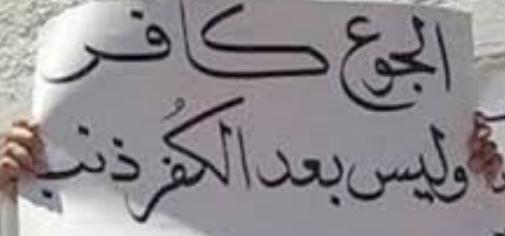 الجوع كافر
وليس بعد الكفُر ذنب